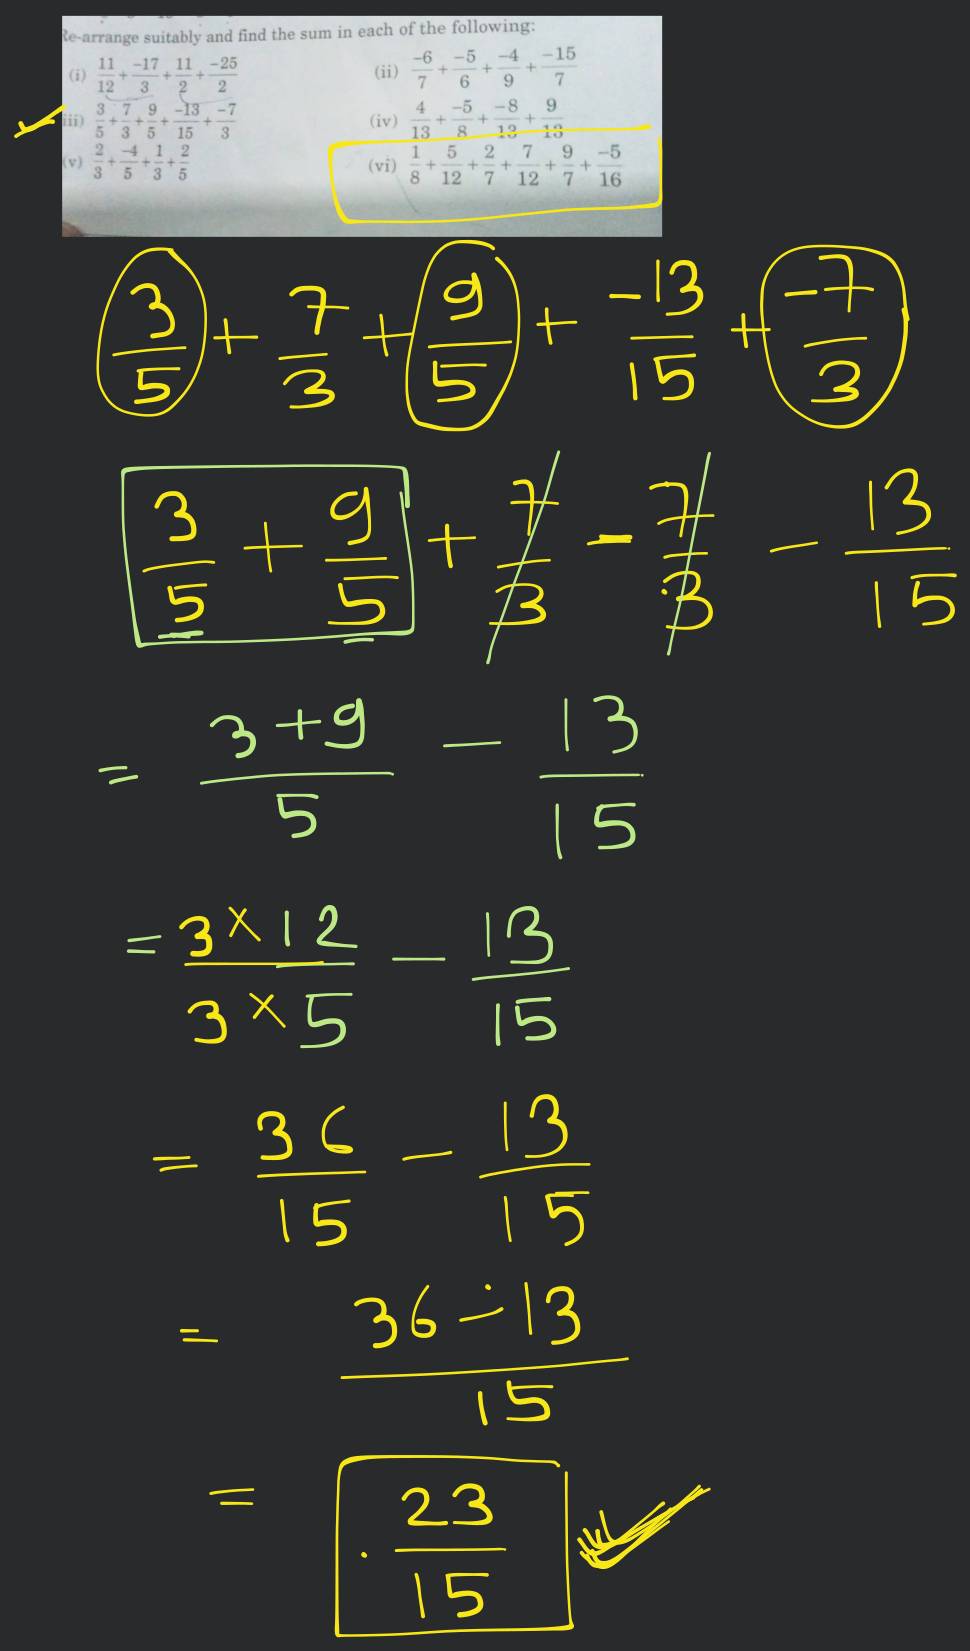 Re-arrange suitably and find the sum in each of the following:
(i) 11/12 + -17/3 + 11/2 + -25/2
(ii) -6/7 + -5/6 + -4/9 + -15/7
iii) 3/5 + 7/3 + 9/5 + -13/15 + -7/3
(iv) 4/13 + -5/8 + -8/13 + 9/13
(v) 2/3 + -4/5 + 1/3 + 2/5
(vi) 1/8 + 5/12 + 2/7 + 7/12 + 9/7 + -5/16
3/5 + 7/3 + 9/5 + -13/15 + -7/3
3/5 + 9/5 + 7/3 - 7/3 - 13/15
= 3+9/5 - 13/15
= 3×12/3×5 - 13/15
= 36/15 - 13/15
= 36-13/15
= 23/15